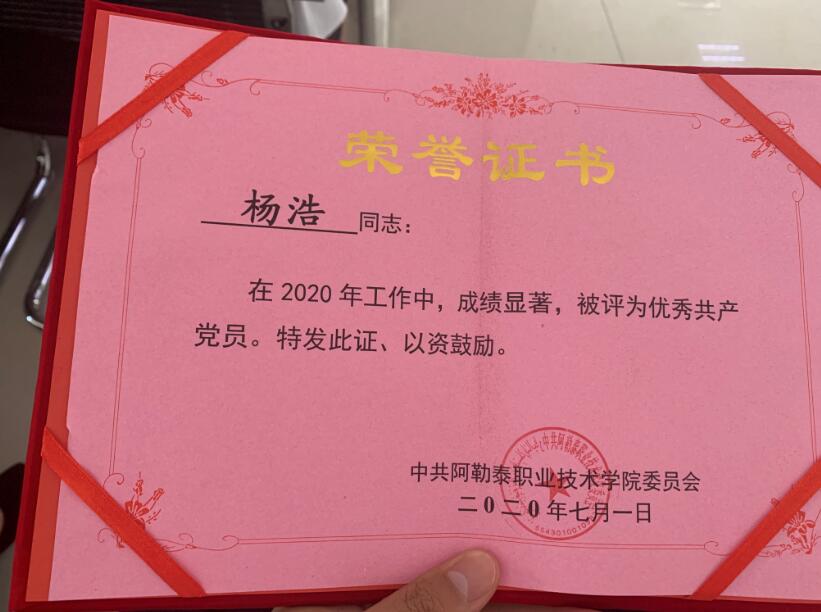 荣誉证书
杨浩 同志：
在 2020 年工作中，成绩显著，被评为优秀共产
党员。特发此证、以资鼓励。
中共阿勒泰职业技术学院委员会
二0二0年七月一日